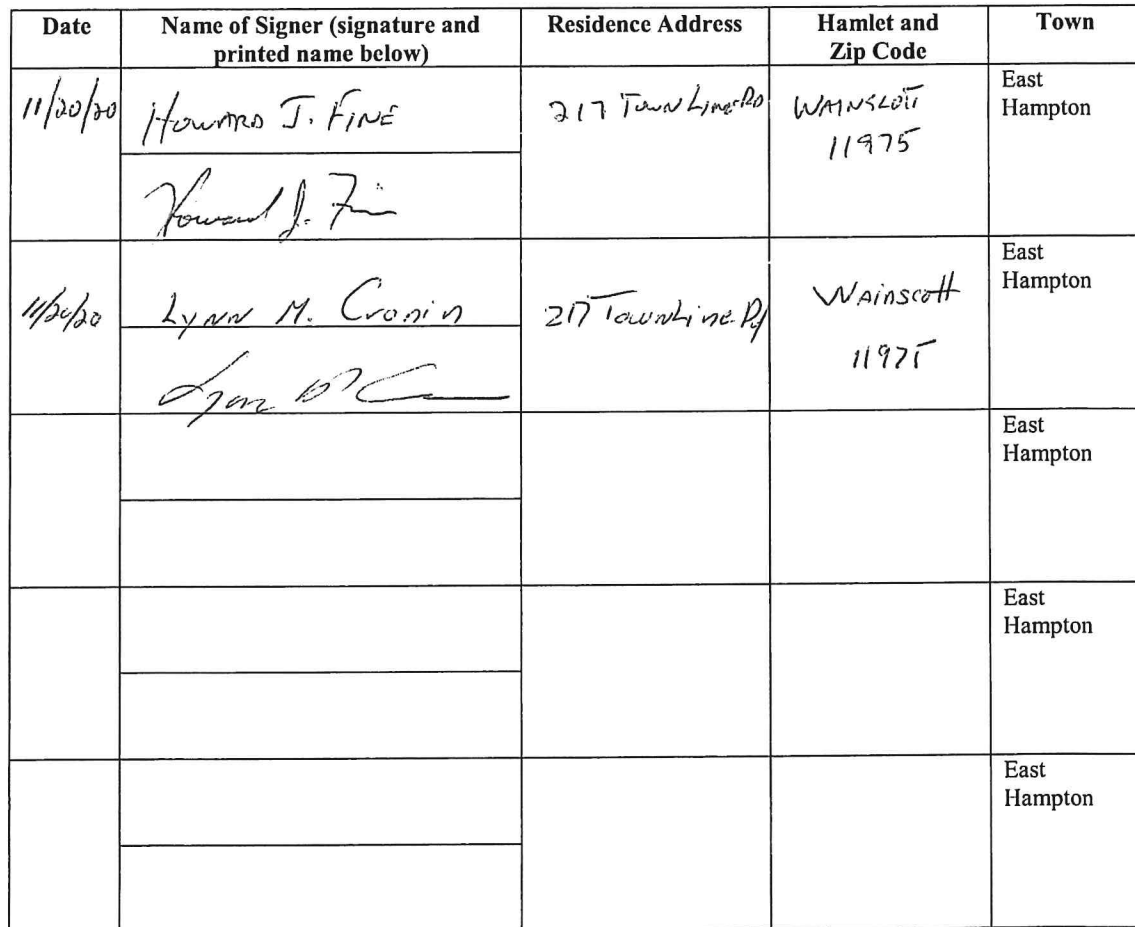 Date
Name of Signer (signature and
printed name below)
Residence Address
Hamlet and
Zip Code
Town
11/20/20
HOWARD J. FINE
217 Town Line RD
WAINSCOTT
11975
East
Hampton
Howard J. Fine
11/20/20
Lynn M. Cronin
217 Town Line Rd
WAinscott
11975
East
Hampton
Lynn M C
East
Hampton
East
Hampton
East
Hampton